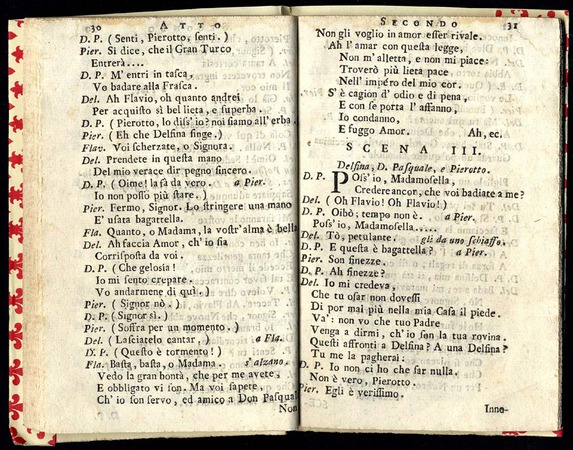 30 ATTO
D. P. ( Senti, Pierotto, senti. )
Pier. Si dice, che il Gran Turco
Entrerà....
D. P. M' entri in tasca,
Vo badare alla Frasca.
Del. Ah Flavio, oh quanto andrei
Per acquisto sì bel lieta, e superba.
D. P. ( Pierotto, lo diss' io? noi siamo all' erba.
Pier. ( Eh che Delfina finge. )
Flav. Voi scherzate, o Signora.
Del. Prendete in questa mano
Del mio verace dir pegno sincero.
D. P. ( Oime! la fà da vero. a Pier.
Io non posso più stare. )
Pier. Fermo, Signor. Lo stringere una mano
E' usata bagattella.
Fla. Quanto, o Madama, la vostr' alma è bella
Del. Ah faccia Amor, ch' io sia
Corrisposta da voi.
D. P. ( Che gelosia!
Io mi sento crepare.
Vo andarmene di quì. )
Pier. ( Signor nò. )
D. P. ( Signor sì. )
Pier. ( Soffra per un momento. )
Del. ( Lasciatelo cantar, ) a Fla.
D. P. ( Questo è tormento! )
Fla. Basta, basta, o Madama. s' alzano.
Vedo la gran bontà, che per me avete,
E obbligato vi son. Ma voi sapete,
Ch' io son servo, ed amico a Don Pasqual
Non
SECONDO 31
Non gli voglio in amor esser rivale.
Ah l' amar con questa legge,
Non m' alletta, e non mi piace:
Troverò più lieta pace
Nell' impéro del mio cor.
S' è cagion d' odio e di pena,
E con se porta l' affanno,
Io condanno,
E fuggo Amor. Ah, ec.
SCENA III.
Delfina, D. Pasquale, e Pierotto.
D. P. Poss' io, Madamosella,
Credere ancor, che voi badiate a me?
Del. ( Oh Flavio! Oh Flavio! )
D. P. Oibò; tempo non è. a Pier.
Poss' io, Madamosella.....
Del. Tò, petulante. gli dà uno schiaffo.
D. P. E questa è bagattella? a Pier.
Pier. Son finezze.
D. P. Ah finezze?
Del. Io mi credeva,
Che tu osar non dovessi
Di por mai più nella mia Casa il piede.
Va': non vo che tuo Padre
Venga a dirmi, ch' io son la tua rovina.
Questi affronti a Delfina? A una Delfina?
Tu me la pagherai:
D. P. Io non ci ho che far nulla.
Non è vero, Pierotto.
Pier. Egli è verissimo.
Inno-